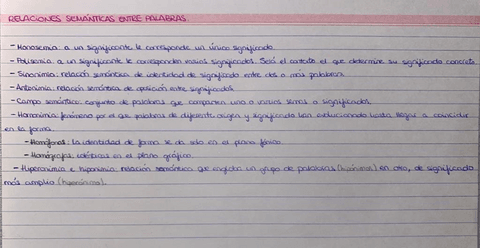 RELACIONES SEMÁNTICAS ENTRE PALABRAS.
- Monosemia: a un significante le corresponde un único significado.
- Polisemia: a un significante le corresponden varios significados. Será el contexto el que determine su significado concreto.
- Sinonimia: relación semántica de identidad de significado entre dos o más palabras.
- Antonimia: relación semántica de oposición entre significados.
- Campo semántico: conjunto de palabras que comparten uno o varios semas o significados.
- Homonimia: fenómeno por el que palabras de diferente origen y significado han evolucionado hasta llegar a coincidir
en la forma.
- Homófonas: la identidad de forma se da solo en el plano fónico.
- Homógrafas: idénticas en el plano gráfico.
- Hiperonimia e hiponimia: relación semántica que engloba un grupo de palabras (hipónimos) en otro, de significado
más amplio